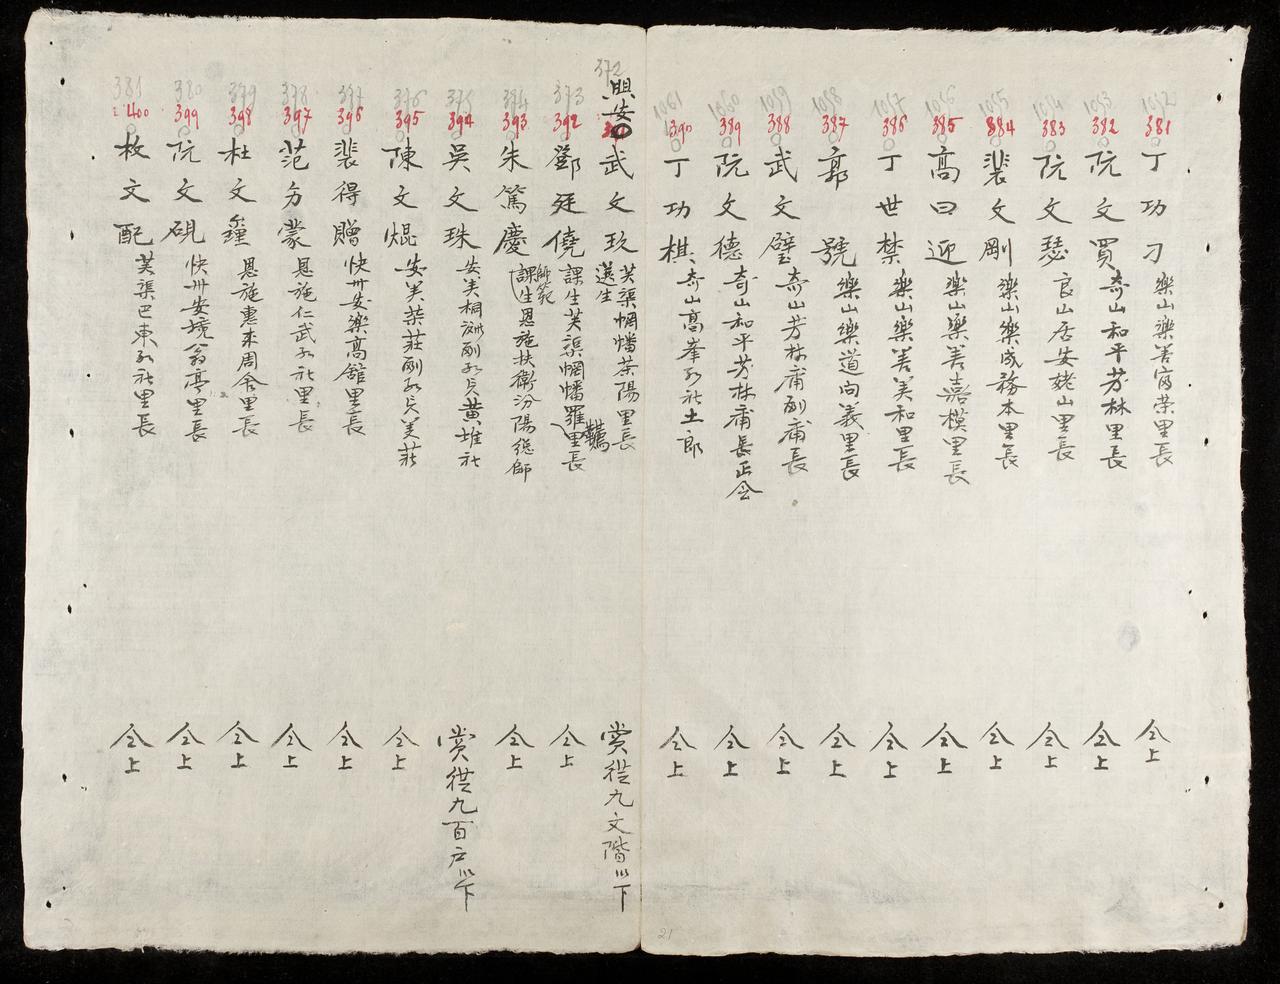 1052 381 丁功刁 樂山樂善富荣里長 仝上
1053 382 阮文買 奇山和平芳林里長 仝上
1054 383 阮文瑟 良山居安姥山里長 仝上
1055 384 裴文剛 樂山樂成務本里長 仝上
1056 385 高曰迎 樂山樂善嘉模里長 仝上
1057 386 丁世禁 樂山樂善美和里長 仝上
1058 387 郭號 樂山樂道向義里長 仝上
1059 388 武文璧 奇山芳林甫副甫長 仝上
1060 389 阮文德 奇山和平芳林甫長正仝 仝上
1061 390 丁功棋 奇山高峯社土郎 仝上
372 興安 武文玖 選生 芙蕖幗幡茶陽里長 賞從九文階以下
373 392 鄧廷僥 課生芙蕖幗幡羅里長 仝上
374 393 朱篤慶 師範 課生恩施扶衛汾陽總師 仝上
375 394 吳文珠 安美桐副黄堆社 賞從九百户以下
376 395 陳文焜 安美荣莊副美莊 仝上
377 396 裴得贈 快州安樂高舘里長 仝上
378 397 范蒙 恩施仁武社里長 仝上
379 398 杜文鐘 恩施惠來周舍里長 仝上
380 399 阮文硯 快州安境翁亭里長 仝上
381 400 枚文配 芙蕖巴東社里長 仝上
21